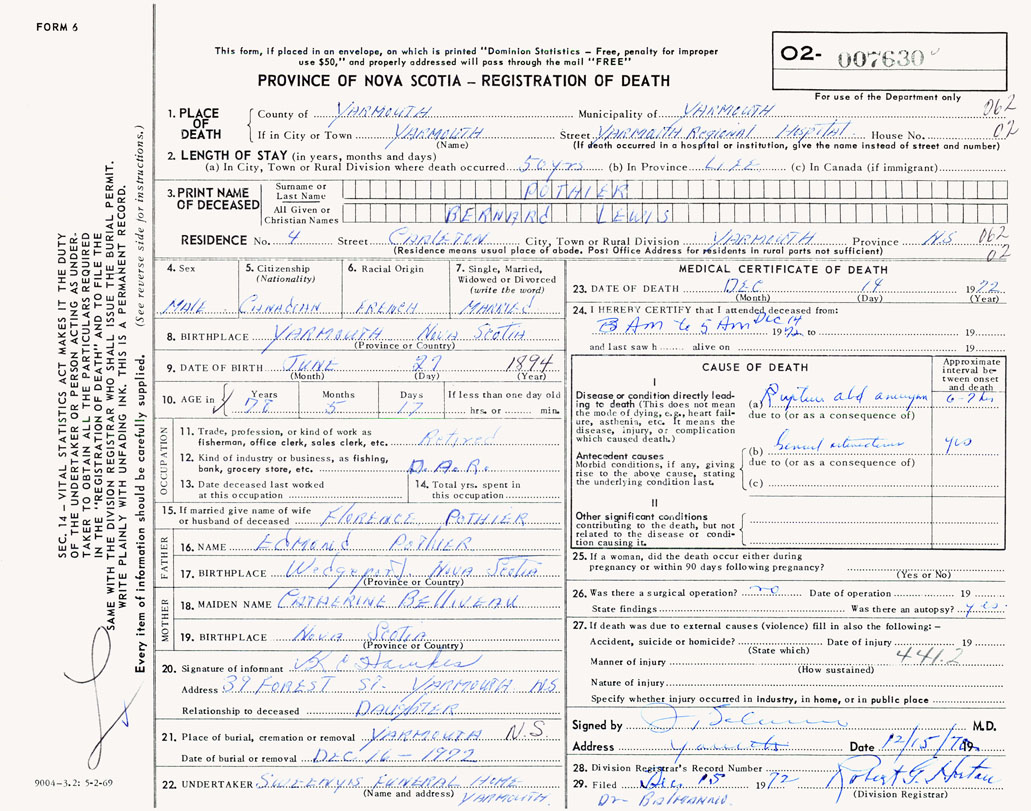 FORM 6
This form, if placed in an envelope, on which is printed "Dominion Statistics – Free, penalty for improper
use $50," and properly addressed will pass through the mail "FREE"
PROVINCE OF NOVA SCOTIA – REGISTRATION OF DEATH
O2- 007630
For use of the Department only
062
02
1. PLACE OF DEATH
County of YARMOUTH Municipality of YARMOUTH
If in City or Town YARMOUTH Street YARMOUTH REGIONAL HOSPITAL House No.
(Name) (If death occurred in a hospital or institution, give the name instead of street and number)
2. LENGTH OF STAY (in years, months and days)
(a) In City, Town or Rural Division where death occurred 50 yrs (b) In Province LIFE (c) In Canada (if immigrant)
3. PRINT NAME OF DECEASED
Surname or Last Name POTHIER
All Given or Christian Names BERNARD LEWIS
RESIDENCE No. 4 Street CARLETON City, Town or Rural Division YARMOUTH Province N.S 062
02
(Residence means usual place of abode. Post Office Address for residents in rural parts not sufficient)
4. Sex
MALE
5. Citizenship
(Nationality)
CANADIAN
6. Racial Origin
FRENCH
7. Single, Married,
Widowed or Divorced
(write the word)
MARRIED
8. BIRTHPLACE YARMOUTH NOVA SCOTIA
(Province or Country)
9. DATE OF BIRTH JUNE 27 1894
(Month) (Day) (Year)
10. AGE in Years Months Days If less than one day old
78 5 17 hrs. or min.
OCCUPATION
11. Trade, profession, or kind of work as
fisherman, office clerk, sales clerk, etc. Retired
12. Kind of industry or business, as fishing,
bank, grocery store, etc. D.A.R.
13. Date deceased last worked
at this occupation
14. Total yrs. spent in
this occupation
15. If married give name of wife
or husband of deceased FLORENCE POTHIER
FATHER
16. NAME EDMOND POTHIER
17. BIRTHPLACE Wedgeport NOVA SCOTIA
(Province or Country)
MOTHER
18. MAIDEN NAME CATHERINE BELLIVEAU
19. BIRTHPLACE NOVA SCOTIA
(Province or Country)
20. Signature of informant Hawkes
Address 39 FOREST ST. YARMOUTH N.S.
Relationship to deceased DAUGHTER
21. Place of burial, cremation or removal YARMOUTH N.S.
Date of burial or removal DEC 16 – 1972
22. UNDERTAKER SWEENY'S FUNERAL HOME
(Name and address) YARMOUTH
MEDICAL CERTIFICATE OF DEATH
23. DATE OF DEATH DEC 14 1972
(Month) (Day) (Year)
24. I HEREBY CERTIFY that I attended deceased from:
3 AM to 5 AM Dec 14 1972 to 19
and last saw h alive on 19
CAUSE OF DEATH
Approximate
interval be-
tween onset
and death
I
Disease or condition directly lead-
ing to death (This does not mean
the mode of dying, e.g., heart fail-
ure, asthenia, etc. It means the
disease, injury, or complication
which caused death.)
(a) Rupture abd aneurysm 6-7 hrs
due to (or as a consequence of)
Antecedent causes
Morbid conditions, if any, giving
rise to the above cause, stating
the underlying condition last.
(b)
due to (or as a consequence of)
(c)
II
Other significant conditions
contributing to the death, but not
related to the disease or condi-
tion causing it.
25. If a woman, did the death occur either during
pregnancy or within 90 days following pregnancy?
(Yes or No)
26. Was there a surgical operation? no Date of operation 19
State findings Was there an autopsy? yes
27. If death was due to external causes (violence) fill in also the following:–
Accident, suicide or homicide? Date of injury 19
(State which)
Manner of injury 441.2
(How sustained)
Nature of injury
Specify whether injury occurred in industry, in home, or in public place
Signed by M.D.
Address Yarmouth Date 12/15/72 19
28. Division Registrar's Record Number
29. Filed Dec. 15 1972 Robert G. Horton
(Division Registrar)
SEC. 14 – VITAL STATISTICS ACT MAKES IT THE DUTY
OF THE UNDERTAKER OR PERSON ACTING AS UNDER-
TAKER TO OBTAIN ALL THE PARTICULARS REQUIRED
IN THE "REGISTRATION OF DEATH" AND TO FILE THE
SAME WITH THE DIVISION REGISTRAR WHO SHALL ISSUE THE BURIAL PERMIT.
WRITE PLAINLY WITH UNFADING INK. THIS IS A PERMANENT RECORD.
Every item of information should be carefully supplied. (See reverse side for instructions.)
9004–3.2: 5-2-69